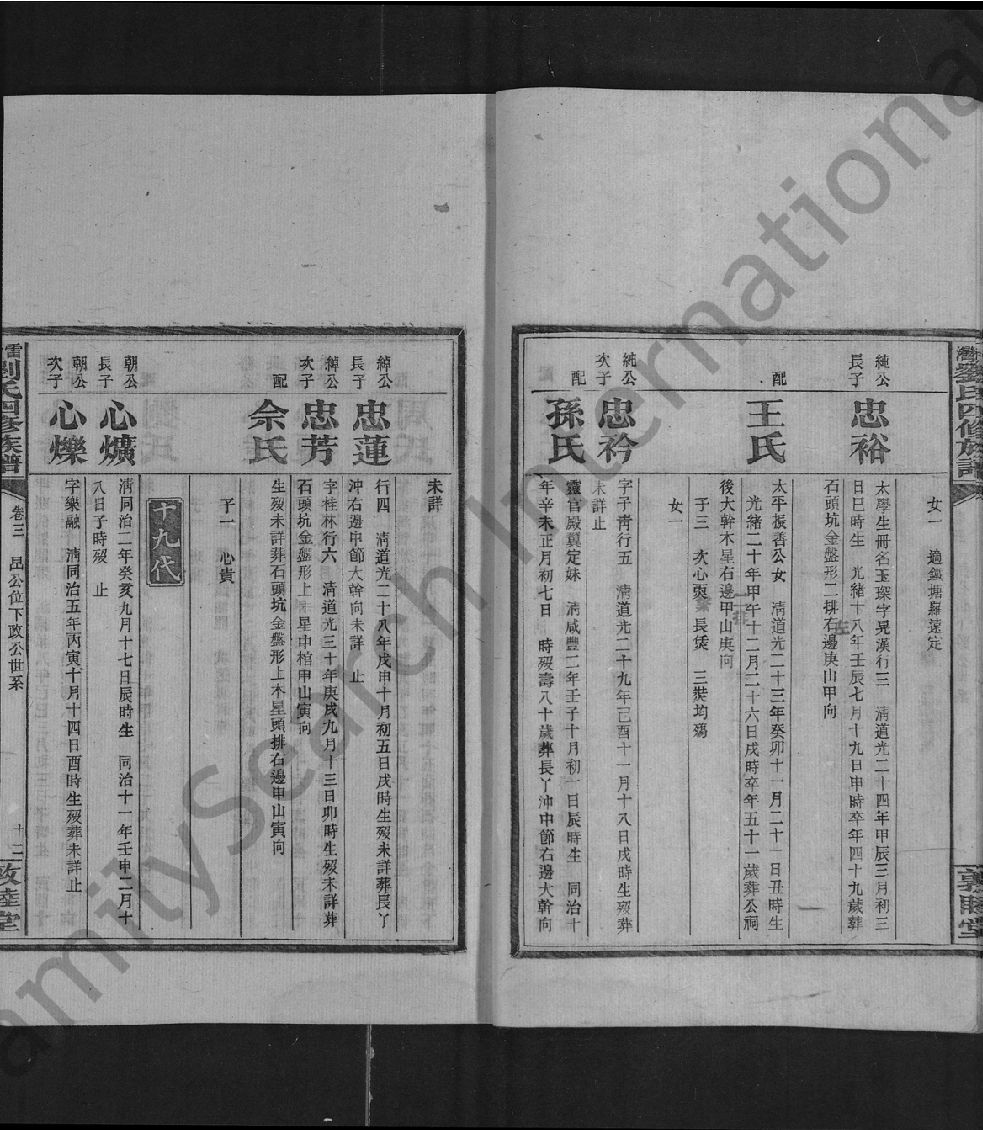 女一 適鐵塘羅遠定
純公
長子
忠裕
太學生冊名玉琛字晃漢行三 清道光二十四年甲辰三月初三
日巳時生 光緒十八年壬辰七月十九日申時卒年四十九歲葬
石頭坑金盤形二排石邊庚山甲向
配
王氏
太平振善公女 清道光二十三年癸卯十一月二十一日丑時生
光緒二十年甲午十二月二十六日戌時卒年五十一歲葬公祠
後大幹木星石邊甲山庚向
子三 次心 長 三裝均殤
女一
純公
次子
忠衿
字子青行五 清道光二十九年己酉十一月十八日戌時生歿葬
未詳止
配
孫氏
靈官殿冀定妹 清咸豐二年壬子十月初一日辰時生 同治十
年辛未正月初七日 時歿壽八十歲葬長丫沖中節石邊大幹向
未詳
綽公
長子
忠蓮
行四 清道光二十八年戊申十月初五日戌時生歿未詳葬長丫
沖右邊中節大幹向未詳 止
綽公
次子
忠芳
字桂林行六 清道光三十年庚戌九月十三日卯時生歿未詳葬
石頭坑金盤形上木星中棺甲山寅向
配
佘氏
生歿未詳葬石頭坑金盤形上木星頭排石邊申山寅向
子一 心貴
十九代
朝公
長子
心爌
清同治二年癸亥九月十七日辰時生 同治十一年壬申二月十
八日子時歿 止
朝公
次子
心爍
字樂融 清同治五年丙寅十月十四日酉時生歿葬未詳止
劉氏四修族譜
卷三 昂公位下政公世系
十二
敦睦堂